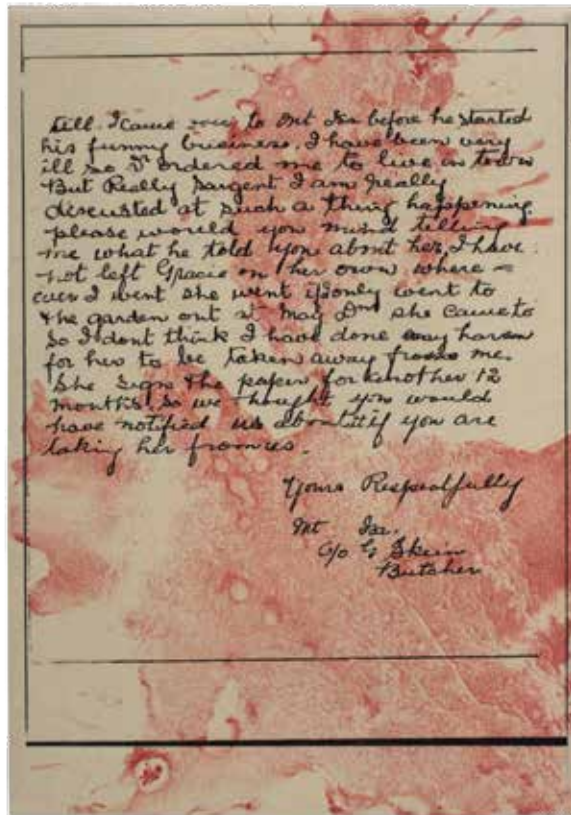 till I came over to Mt Isa before he started
his funny business. I have been very
ill so Dr ordered me to live in town
But Really Sargent I am really
discusted at such a thing happening
please would you mind telling
me what he told you about her, I have
not left Gracie on her own where –
ever I went she went if only went to
the garden out at May Dns she came to
So I dont think I have done any harm
for her to be taken away from me.
She sign the paper for another 12
months. So we thought you would
have notified us about it if you are
taking her from us.
Yours Respectfully
Mt Isa.
C/o G Skein
Butcher